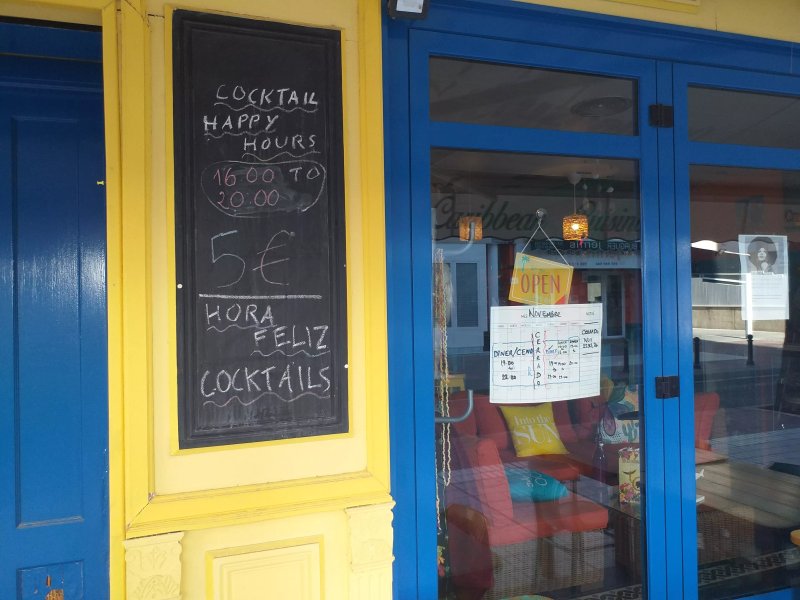 COCKTAIL
HAPPY
HOURS
16.00 TO
20:00
5€
HORA
FELIZ
COCKTAILS
Caribbean Cuisine
OPEN
NOVEMBER
DINER/CENA
19.00
22.00
CERRADO
Into the
SUN